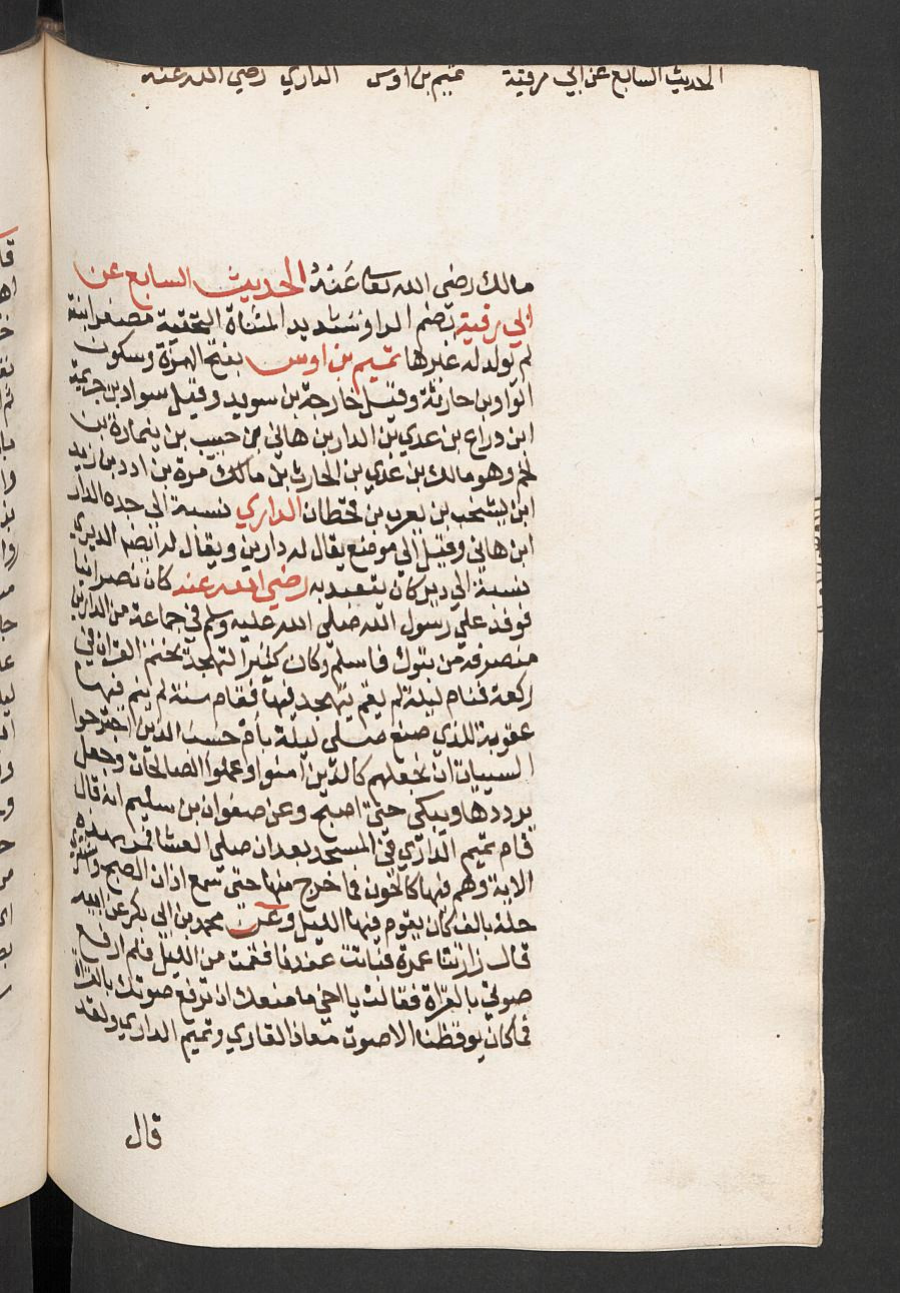 الحديث السابع عن ابي مرقية تميم بن اوس الداري رضي الله عنه
مالك رضي الله تعا عَنْهُ الحديث السابع عن
ابي رقية بضم الراو تشديد المثناة التحتية مصغر ابنة
لم يولد له غيرها تميم بن اوس بفتح الهمزة وسكون
الواو بن حارثة وقيل خارجة بن سويد وقيل سواد بن جزيمة
ابن وراع بن عدي بن الدار بن هاني بن حبيب بن ينمارة بن
لخم وهو مالك بن عدي بن الحارث بن مالك مرة بن ادد بن زيد
ابن يشحب بن يعرب بن قحطان الداري نسبة الي جده الدار
ابن هاني وقيل الي موضع يقال له دارين ويقال له ايضم الديري
نسبة الي دير كان يتعبد به رضي الله عنه كان نصرانيا
فوفد علي رسول الله صلي الله عليه وسلم في جماعة من الدارين
منصرفه من تبوك فاسلم وكان كثير التهجد يختم القران في
ركعة فنام ليلة لم يقم يتهجد فيها فقام سنة لم ينم فيها
عقوبة للذي صنع صلي ليلة بأم حسب الذين اجترحوا
السييات ان نجعلهم كالذين امنوا وعملوا الصالحات وجعل
يرددها ويبكي حتي اصبح وعن صفوان بن سليم انه قال
قام تميم الداري في المسجد بعد ان صلي العشا فمر بهذه
الاية وهم فيها كالحون فما خرج منها حتي سمع اذان الصبح واشتري
حلة بالف كان يقوم فيها الليل وعن محمد بن ابي بكر عن ابيه
قال زارتنا عمرة فباتت عندنا فقمت من الليل فلم ارفع
صوتي بالقراة فقالت يا اخي ما منعك ان ترفع صوتك بالقراة
فما كان يوقظنا الا صوت معاذ القاري وتميم الداري ولقد
قال